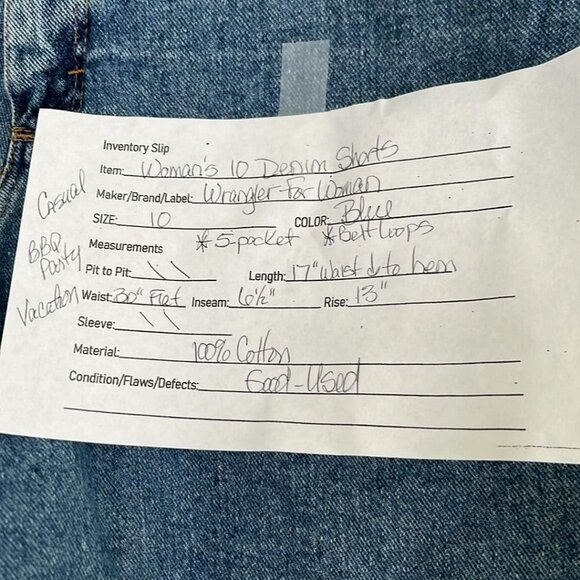 Inventory Slip
Item: Woman's 10 Denim Shorts
Maker/Brand/Label: Wrangler-For Woman
SIZE: 10 COLOR: Blue
Measurements * 5-pocket * Belt Loops
Pit to Pit: \ \ Length: 17" waist to hem
Waist: 30" Flat Inseam: 6½" Rise: 13"
Sleeve: \ \
Material: 100% Cotton
Condition/Flaws/Defects: Good-Used
Casual
BBQ
Party
Vacation